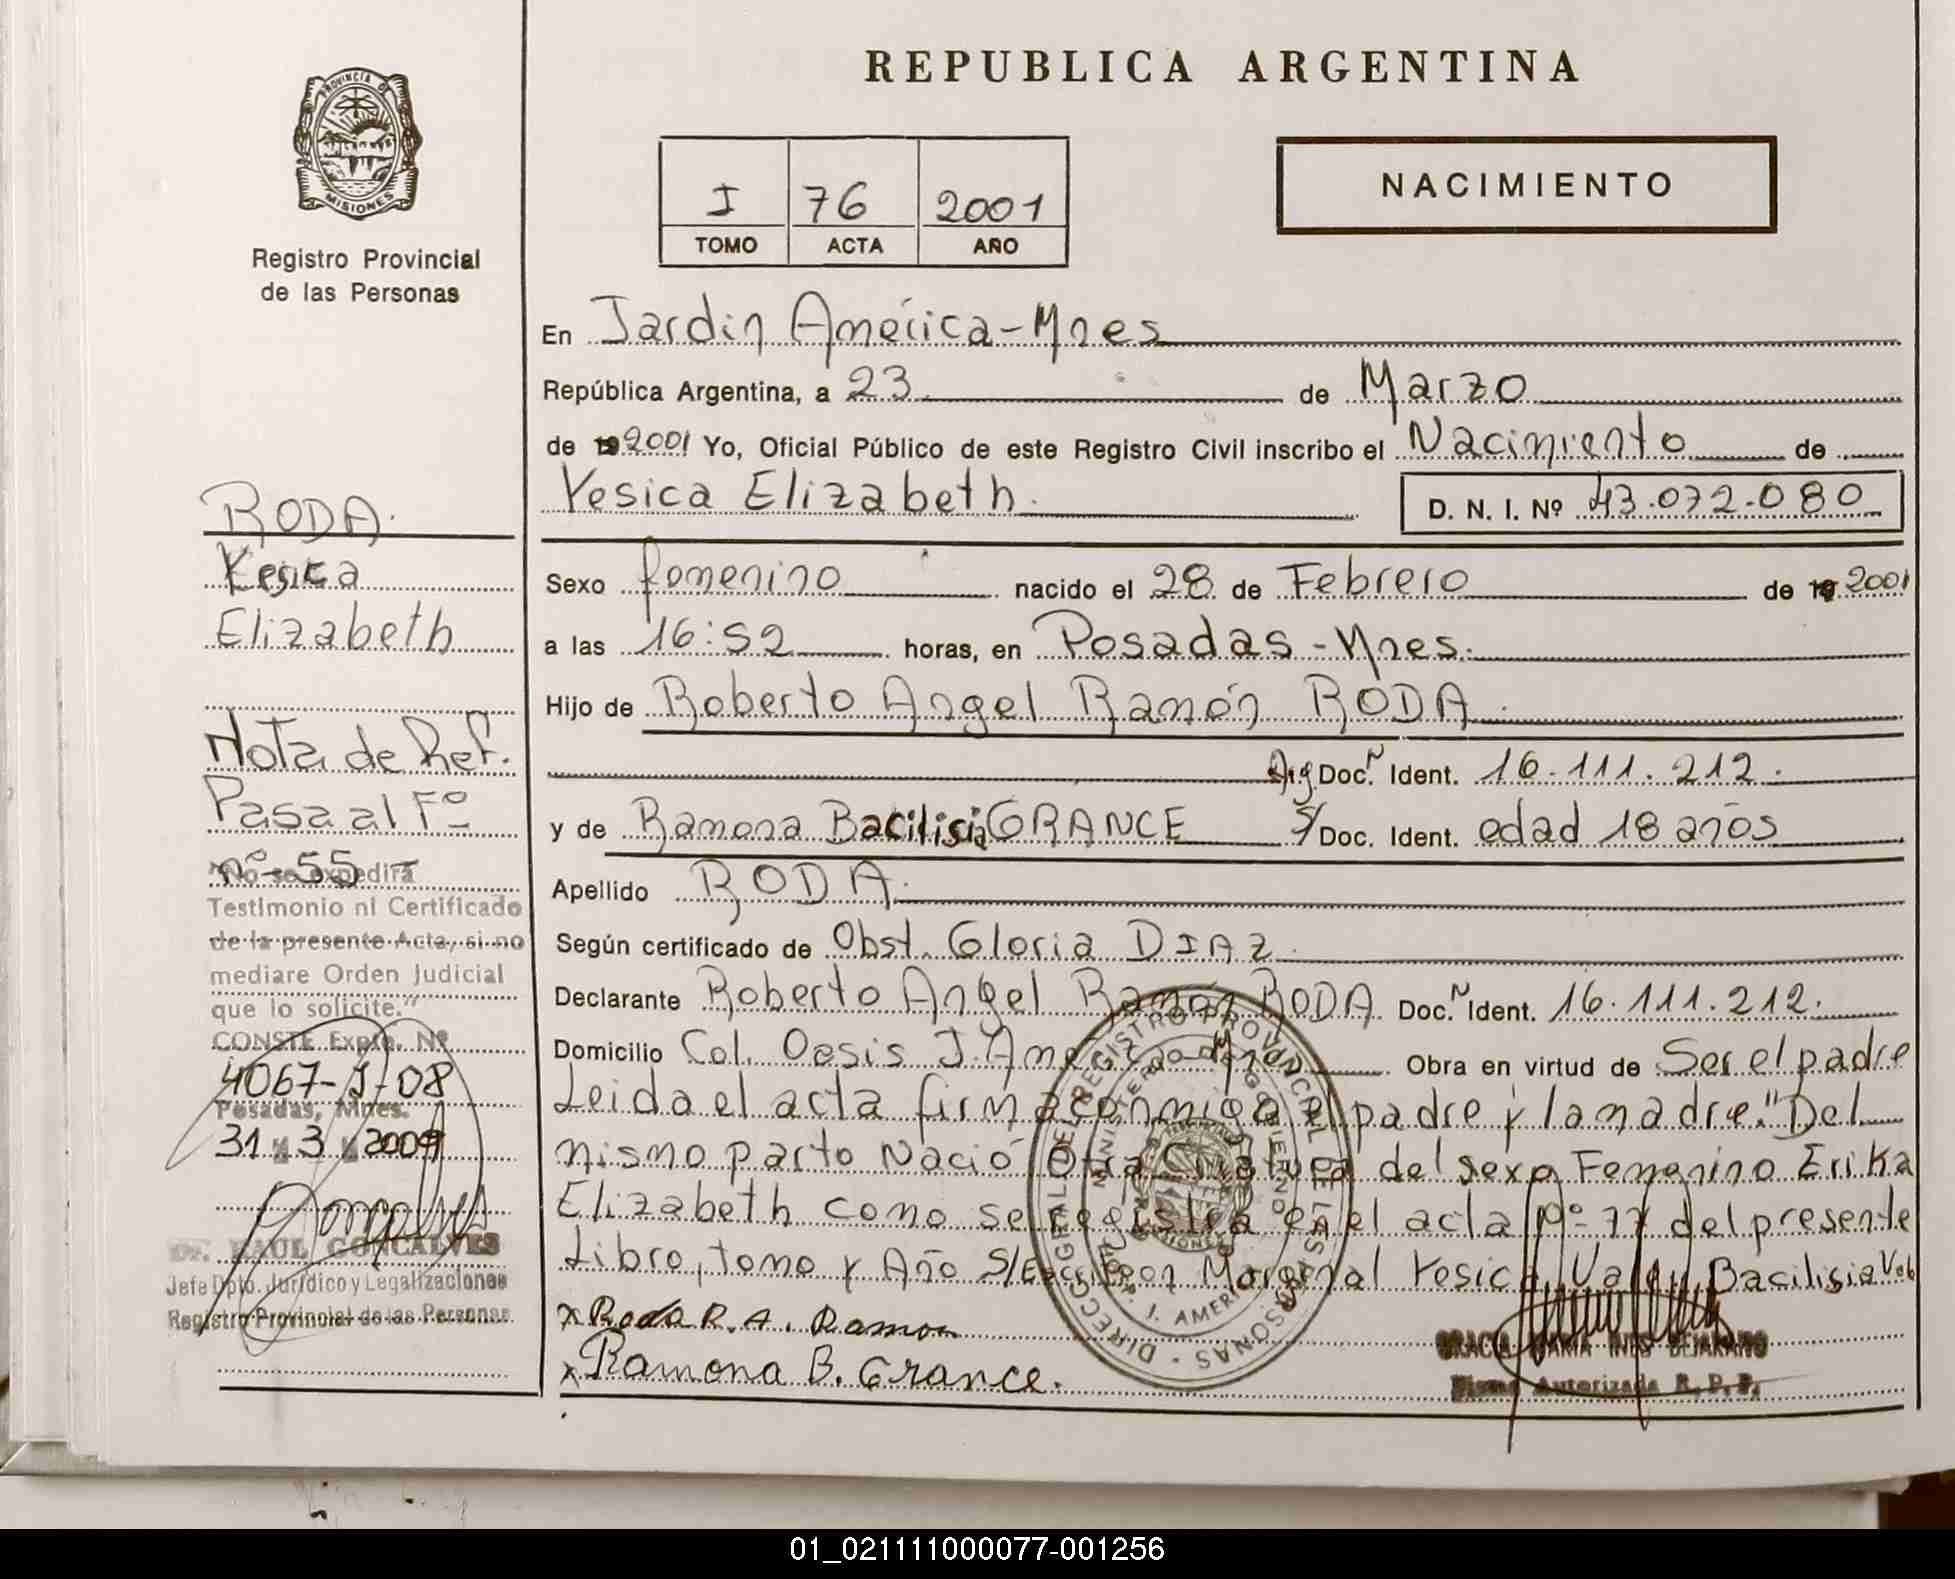 REPUBLICA ARGENTINA
PROVINCIA DE
MISIONES
Registro Provincial
de las Personas
I 76 2001
TOMO ACTA AÑO
NACIMIENTO
En Jardin América-Mnes
República Argentina, a 23 de Marzo
de 19 2001 Yo, Oficial Público de este Registro Civil inscribo el Nacimiento de
Yesica Elizabeth. D. N. I. Nº 43.072.080
Sexo femenino nacido el 28 de Febrero de 19 2001
a las 16:52 horas, en Posadas-Mnes.
Hijo de Roberto Angel Ramón RODA.
Arg. Doc. N Ident. 16.111.212.
y de Ramona Bacilisia GRANCE S/ Doc. Ident. edad 18 años
Apellido RODA.
Según certificado de Obst. Gloria DIAZ.
Declarante Roberto Angel Ramón RODA Doc. N Ident. 16.111.212.
Domicilio Col. Oasis J. América-Mnes Obra en virtud de Ser el padre
Leida el acta firma conmigo el padre y la madre." Del
mismo parto Nació Otra Criatura del sexo Femenino Erika
Elizabeth como se registra en el acta Nº 77 del presente
Libro, tomo y Año S/ Marginal Yesica Vale, Bacilisia
x Roda R. A. Ramon
x Ramona B. Grance.
GRACIA MARIA INES BEJARANO
Firma Autorizada R. P. P.
DIRECC. GRAL DEL REGISTRO PROVINCIAL DE LAS PERSONAS
MINISTERIO DE GOBIERNO
MISIONES
J. AMERICA
RODA.
Yesica
Elizabeth
Nota de Ref.
Pasa al Fº
nº-55-
"No se expedira
Testimonio ni Certificado
de la presente Acta, si no
mediare Orden Judicial
que lo solicite."
CONSTE Expte. Nº
4067-J-08
Posadas, Mnes.
31 3 2009
Gonçalves
Dr. RAUL GONCALVES
Jefe Dpto. Jurídico y Legalizaciones
Registro Provincial de las Personas
01_021111000077-001256